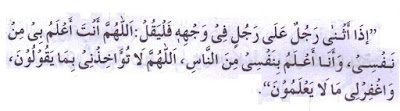 ”إِذَا أَثْنٰى رَجُلٌ عَلَى رَجُلٍ فِيْ وَجْهِهٖ فَلْيَقُلْ: اَللّٰهُمَّ أَنْتَ أَعْلَمُ بِيْ مِنْ
نَفْسِيْ، وَأَنَا أَعْلَمُ بِنَفْسِيْ مِنَ النَّاسِ، اَللّٰهُمَّ لَا تُؤَاخِذْنِيْ بِمَا يَقُوْلُوْنَ،
وَاغْفِرْلِيْ مَا لَا يَعْلَمُوْنَ“.